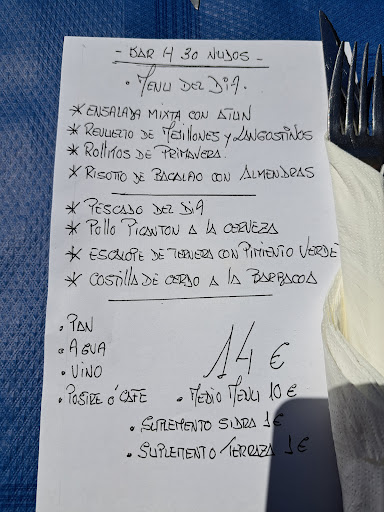 - BAR A 30 NUDOS -
• MENU DEL DIA.
* ENSALADA MIXTA CON ATUN.
* REVUELTO DE MEJILLONES Y LANGOSTINOS
* ROLLITOS DE PRIMAVERA.
* RISOTTO DE BACALAO CON ALMENDRAS
* PESCADO DEL DIA
* POLLO PICANTON A LA CERVEZA
* ESCALOPE DE TERNERA CON PIMIENTO VERDE
* COSTILLA DE CERDO A LA BARBACOA
• PAN
• AGUA
• VINO
14 €
• POSTRE Ó CAFE
• MEDIO MENU 10 €
• SUPLEMENTO SIDRA 1€
• SUPLEMENTO TERRAZA 1€